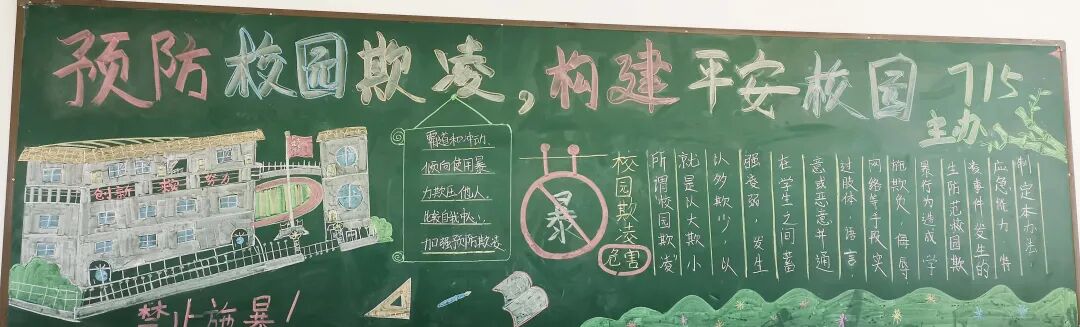 预防校园欺凌,构建平安校园 715
主办
创新
霸道和冲动,
倾向使用暴
力欺压他人,
比较自我中心,
加强预防欺凌
暴
校园欺凌
危害
所谓校园欺凌
就是以大欺小
以多欺少,以
强凌弱,发生
在学生之间蓄
意或恶意并通
过肢体、语言
网络等手段实
施欺负、侮辱
暴行为造成学
生防范校园欺
凌事件发生的
应急能力,特
制定本办法.
禁止施暴!